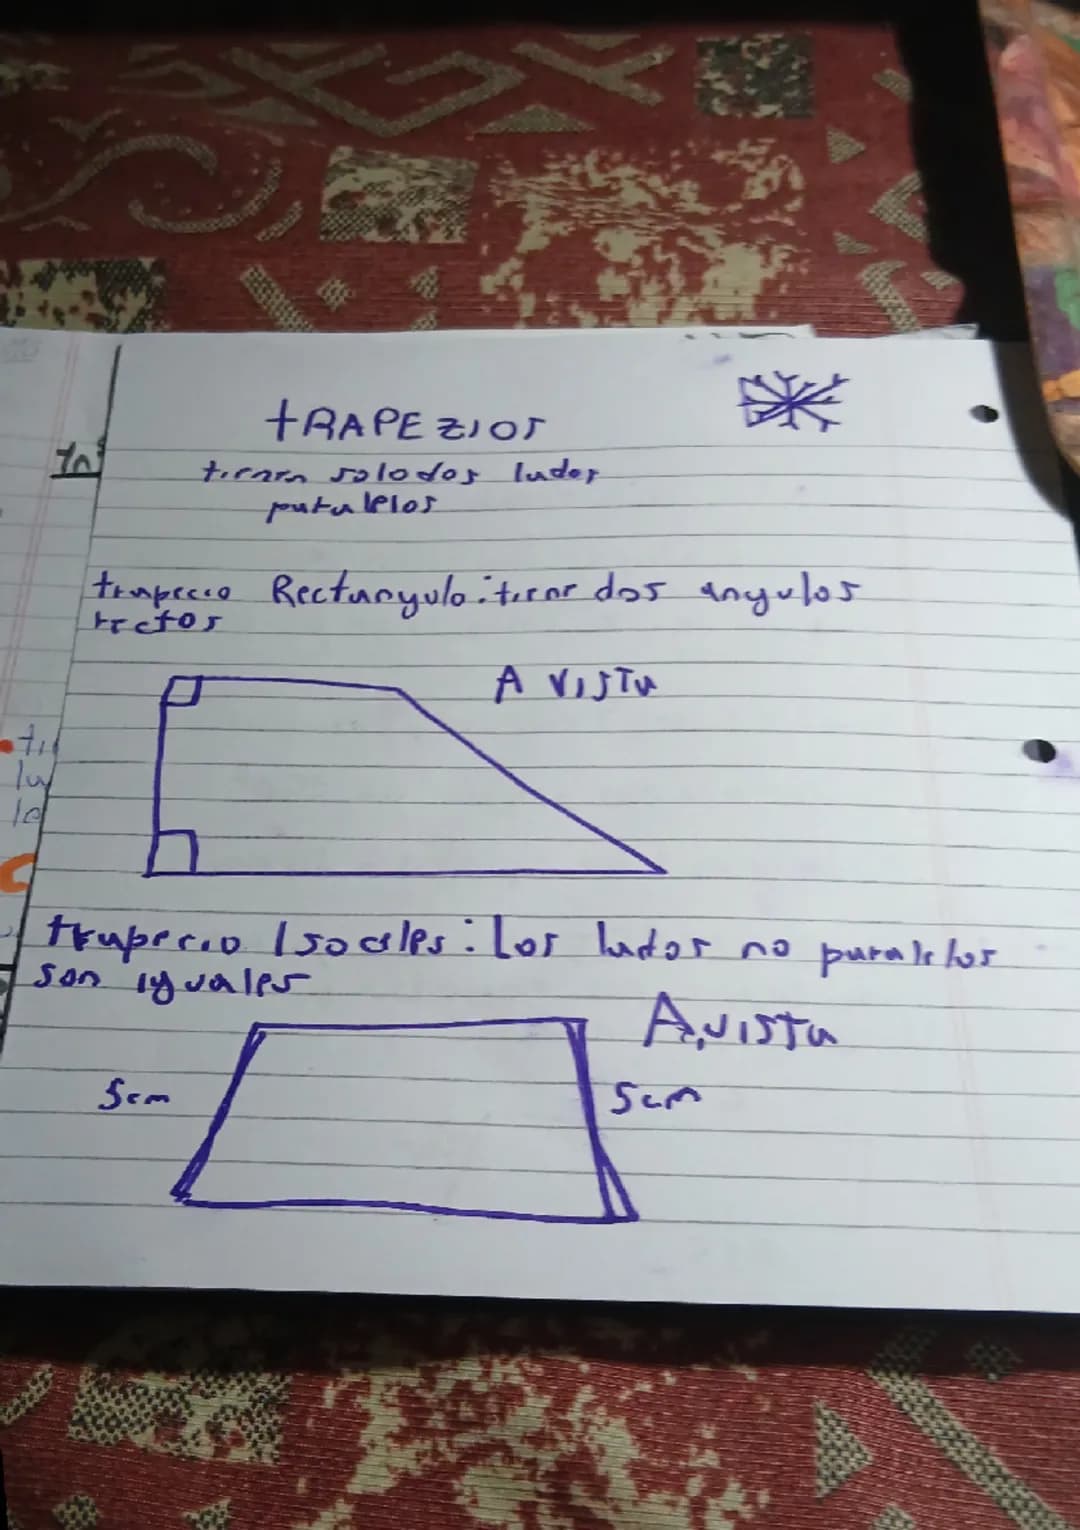 tRAPEZIOS
tienen solo dos lados
paralelos
trapecio Rectangulo: tiene dos angulos
rectos
A VISTA
trapecio Isoceles: Los lados no paralelos
son iguales
A vista
5cm
5cm